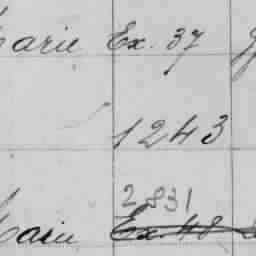 Marie Ex. 37
1243
2831
Marie Ex. 48